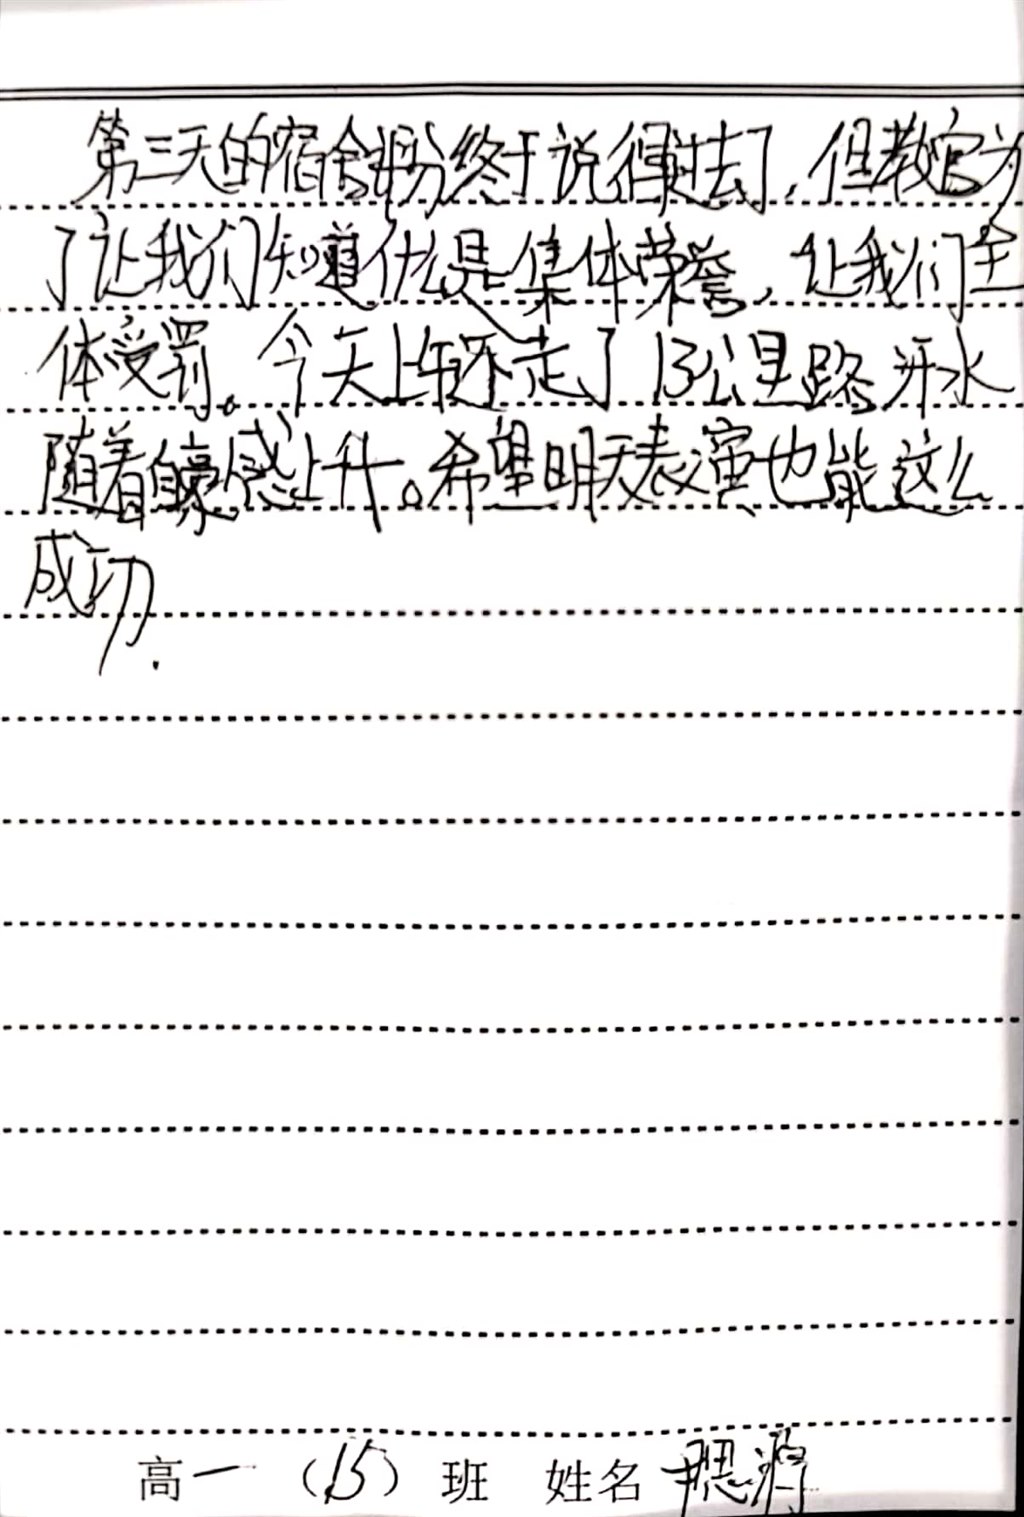 第三天的宿舍部分终于说得过去了,但教官为
了让我们知道什么是集体荣誉,让我们全
体受罚。今天上午还走了13公里路,汗水
随着自豪感上升。希望明天表演也能这么
成功.
高一(15)班 姓名